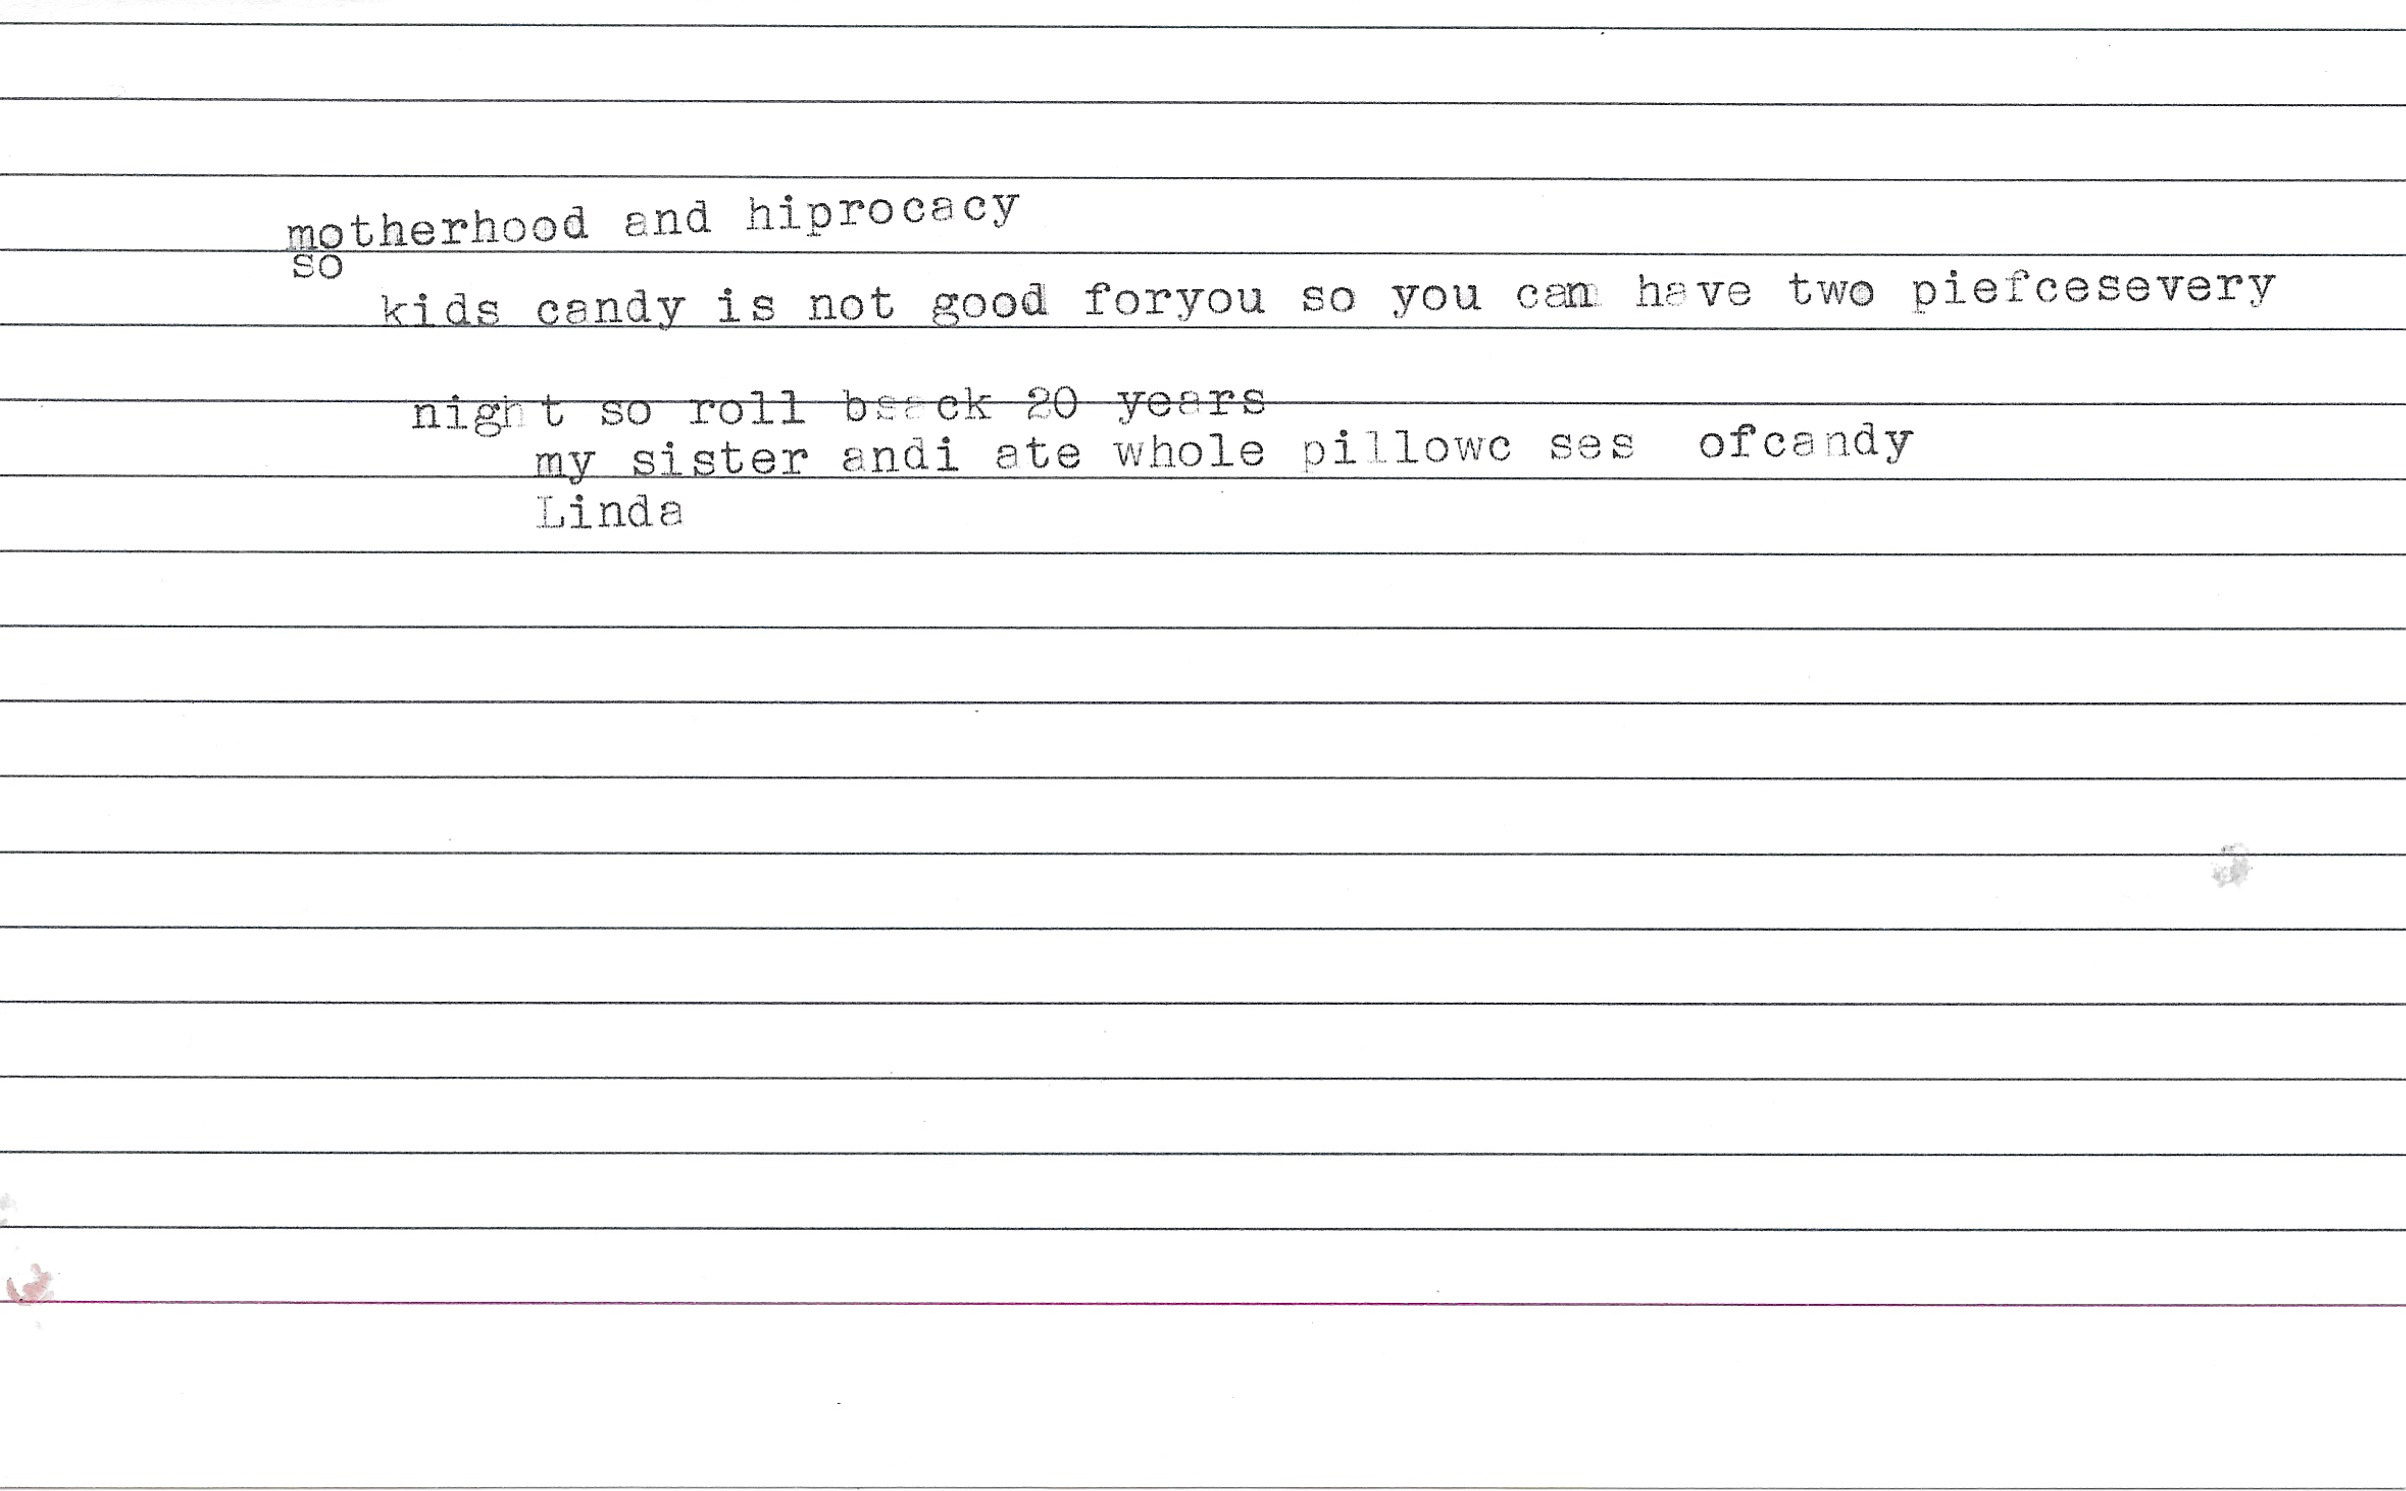 motherhood and hiprocacy
so
kids candy is not good foryou so you can have two piefcesevery
night so roll bsack 20 years
my sister andi ate whole pillowc ses ofcandy
Linda